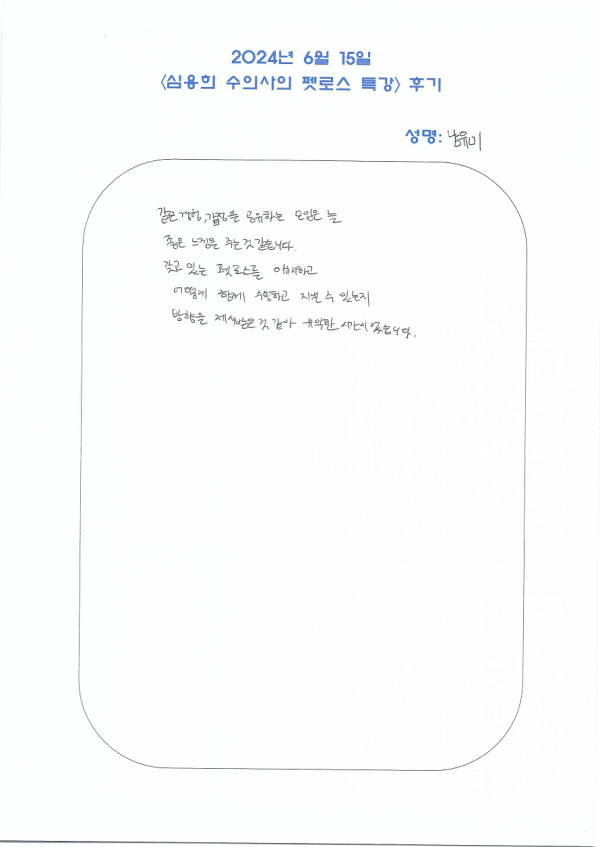 2024년 6월 15일
<심용희 수의사의 펫로스 특강> 후기
성명: 남유미
같은 경험, 감정을 공유하는 모임은 늘
좋은 느낌을 주는것 같습니다.
갖고 있는 펫로스를 이해하고
어떻게 함께 수용하고 지낼 수 있는지
방향을 제시받은것 같아 유익한 시간이였습니다.